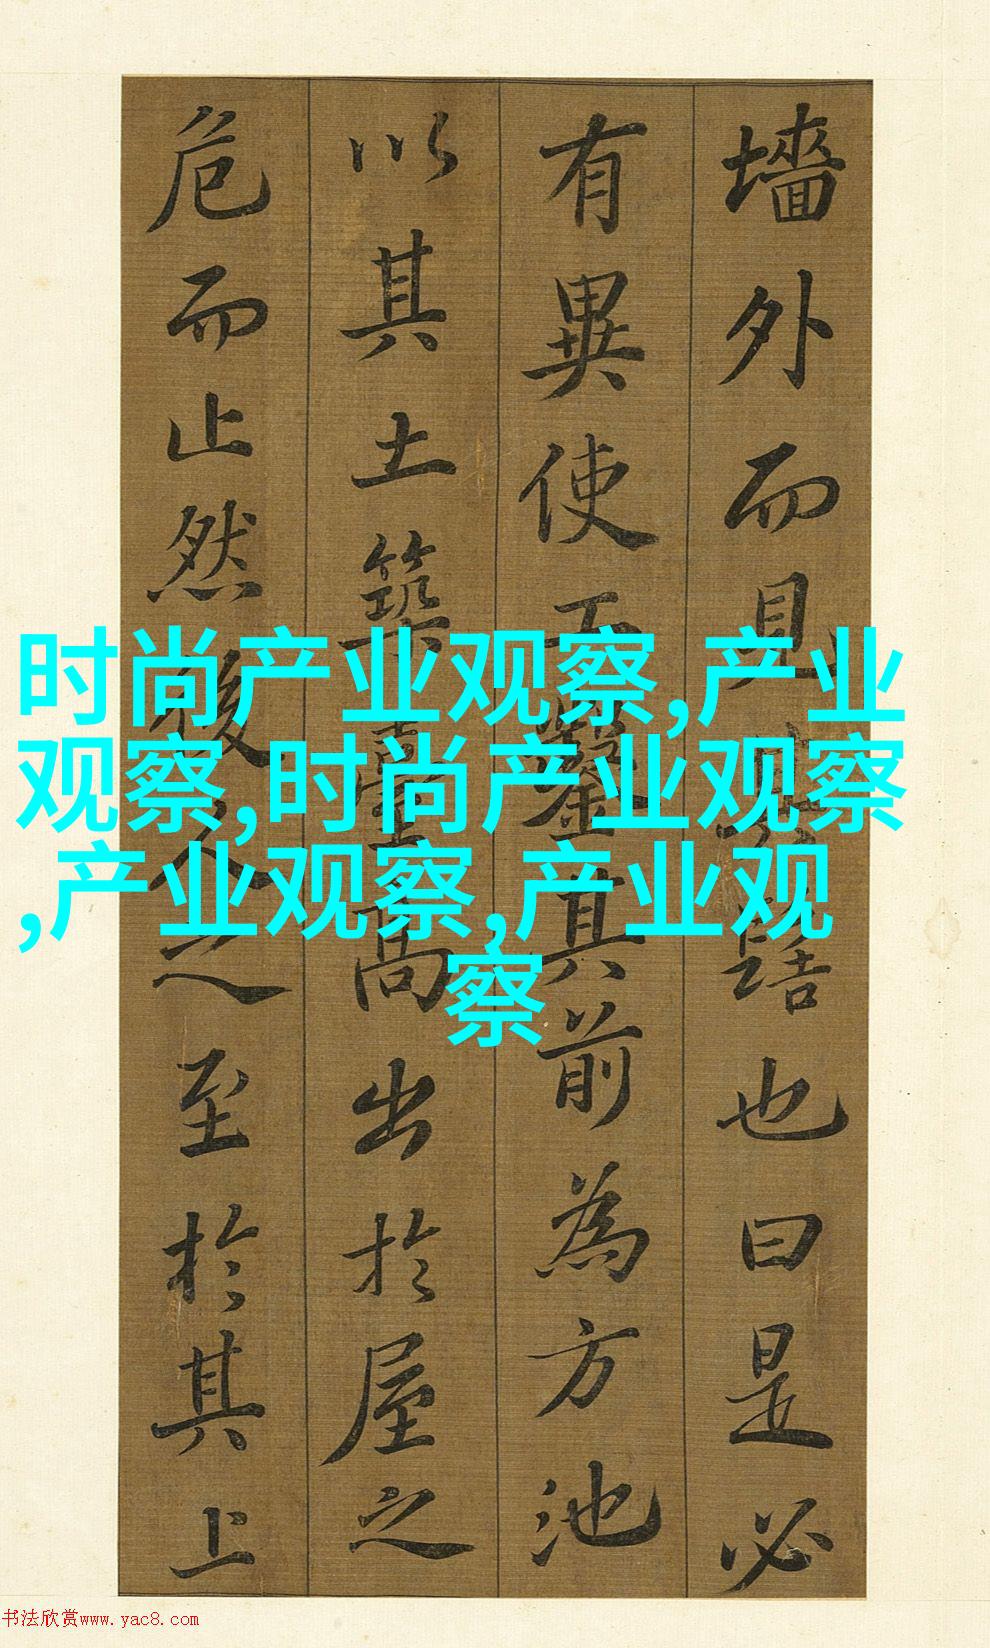 墻外而見其髻也曰是必
有異使工鑿其前為方池
以其土築臺高出於屋之
危而止然後人之至於其上
时尚产业观察,产业
观察,时尚产业观察
,产业观察,产业观
察
书法欣赏www.yac8.com